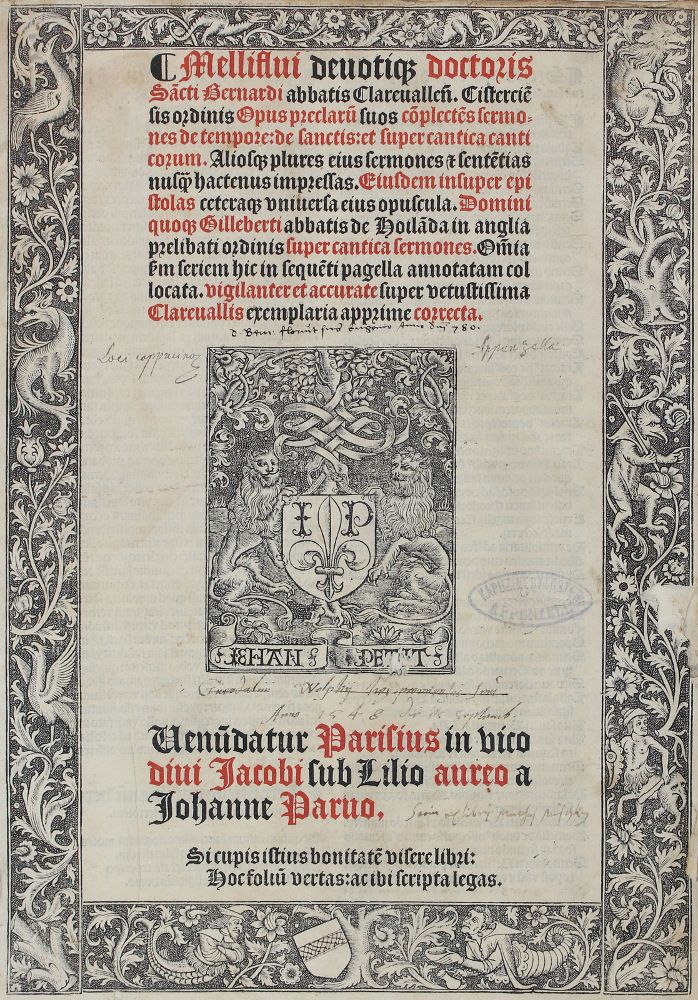 ¶ Melliflui deuotiqꝫ doctoris
Sācti Bernardi abbatis Clareualleñ. Cisterciē
sis ordinis Opus preclarū suos cōplectēs sermo-
nes de tempore: de sanctis: et super cantica canti
corum. Aliosqꝫ plures eius sermones ⁊ sentētias
nusꝗ̄ hactenus impressas. Eiusdem insuper epi
stolas ceteraqꝫ vniuersa eius opuscula. Domini
quoqꝫ Gilleberti abbatis de Hoilāda in anglia
prelibati ordinis super cantica sermones. Om̄ia
ẜm seriem hic in sequēti pagella annotatam col
locata. vigilanter et accurate super vetustissima
Clareuallis exemplaria apprime correcta.
Loci cappucinoꝝ
Appenzella
I P
IEHAN PETIT
KAPUZINERKLOSTER
APPENZELL
Anno 1548 septemb.
Uenūdatur Parisius in vico
diui Jacobi sub Lilio aureo a
Johanne Paruo.
Si cupis istius bonitatē visere libri:
Hoc foliū vertas: ac ibi scripta legas.